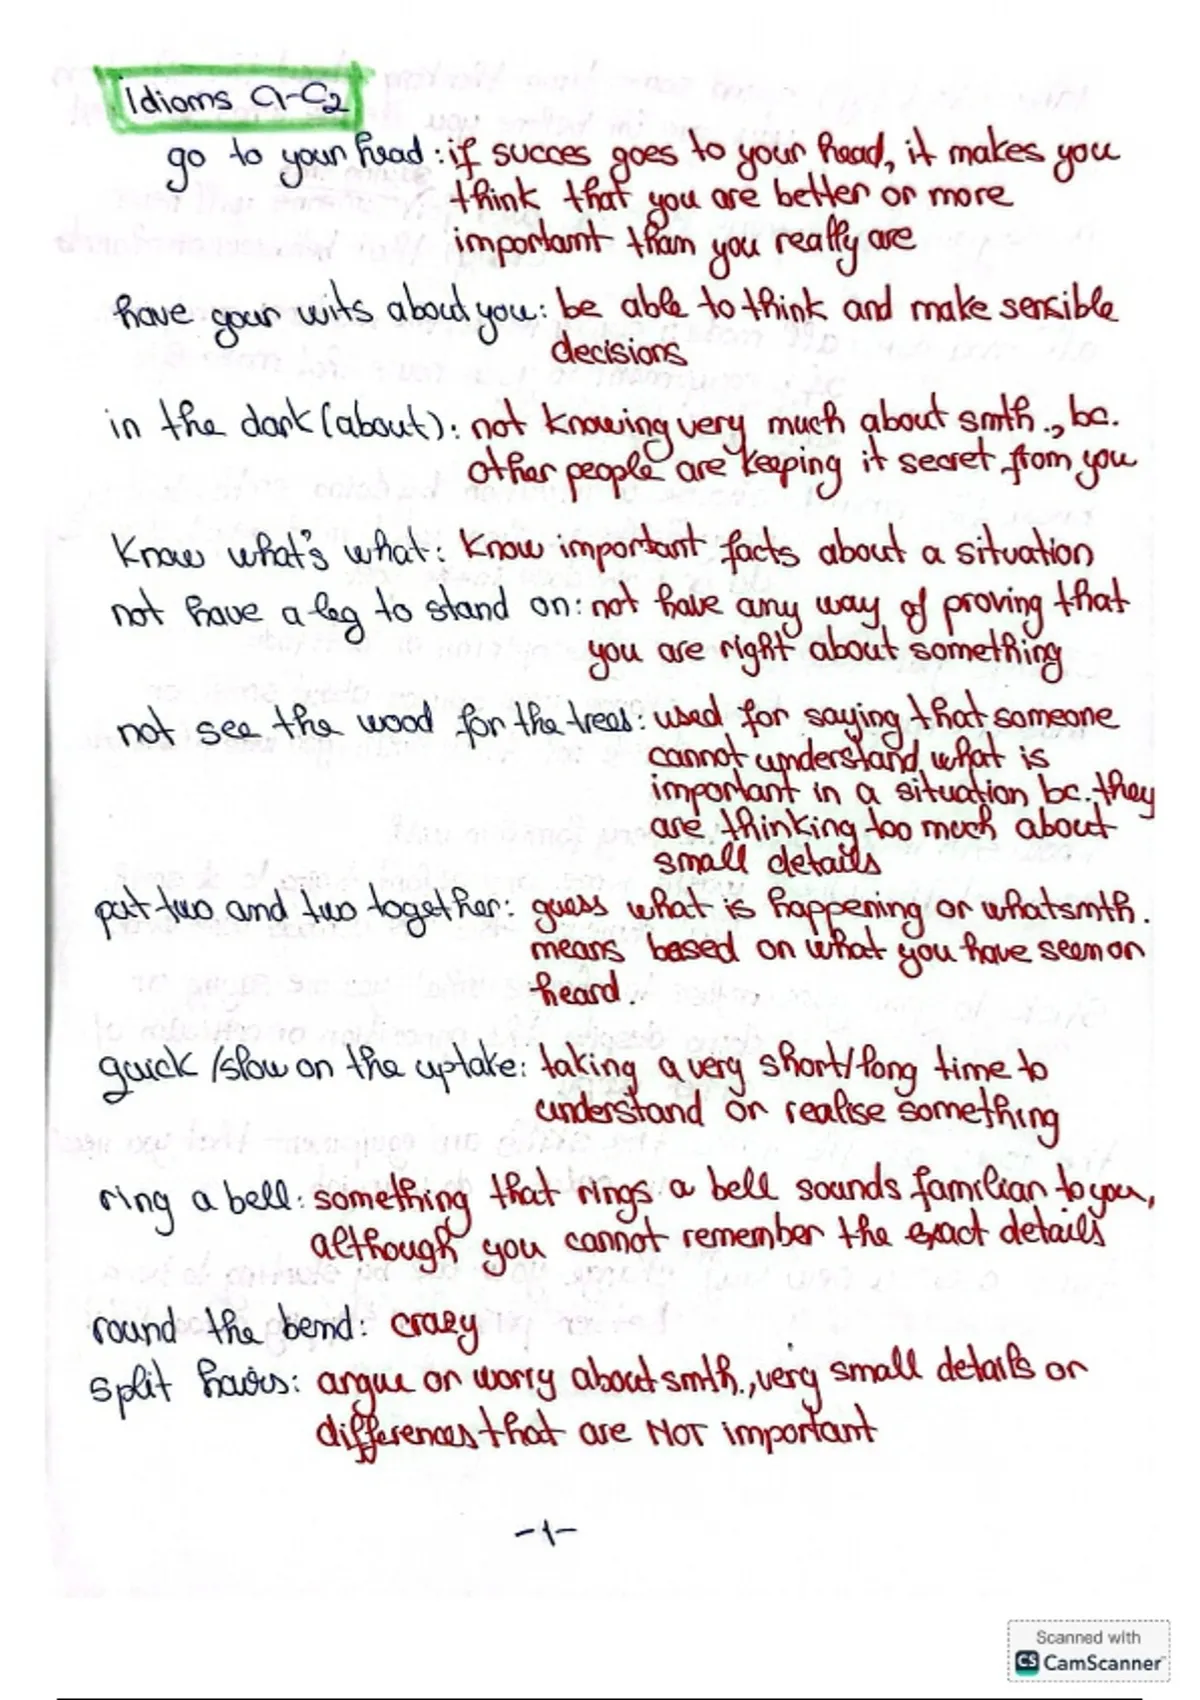 Idioms C1-C2
go to your head: if succes goes to your head, it makes you
think that you are better or more
important than you really are
have your wits about you: be able to think and make sensible
decisions
in the dark (about): not knowing very much about smth., bc.
other people are keeping it secret from you
Know what's what: Know important facts about a situation
not have a leg to stand on: not have any way of proving that
you are right about something
not see the wood for the trees: used for saying that someone
cannot understand what is
important in a situation bc. they
are thinking too much about
small details
put two and two together: guess what is happening or what smth.
means based on what you have seem or
heard.
quick/slow on the uptake: taking a very short/long time to
understand or realise something
ring a bell: something that rings a bell sounds familiar to you,
although you cannot remember the exact details
round the bend: crazy
split hairs: argue or worry about smth., very small details or
differences that are NOT important
-1-
Scanned with
CS CamScanner